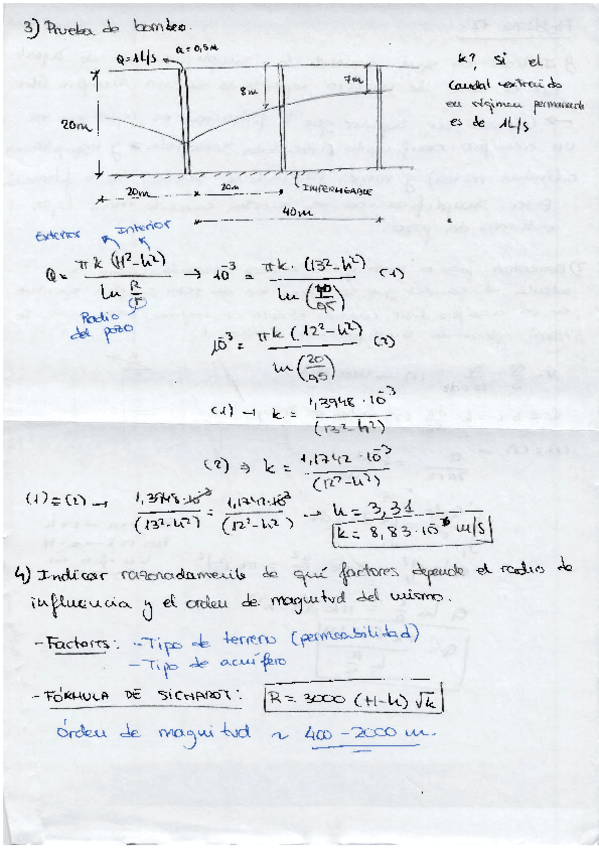 3) Prueba de bombeo.
Q=1L/s a=0,5m
k? Si el
caudal extraído
en régimen permanente
es de 1L/s
8m
7m
20m
20m 20m IMPERMEABLE
40m
Exterior Interior
Q = πk (H²-h²) / ln R/r → 10⁻³ = πk·(13²-h²) / ln(40/0,5) (1)
Radio
del pozo
10⁻³ = πk(12²-h²) / ln(20/0,5) (2)
(1) → k = 1,3948·10⁻³ / (13²-h²)
(2) ⇒ k = 1,1742·10⁻³ / (12²-h²)
(1)=(2) → 1,3948·10⁻³ / (13²-h²) = 1,1742·10⁻³ / (12²-h²) → h = 3,31
k = 8,83·10⁻⁶ m/s
4) Indicar razonadamente de qué factores depende el radio de
influencia y el orden de magnitud del mismo.
- Factores: - Tipo de terreno (permeabilidad)
- Tipo de acuífero
- FÓRMULA DE SICHARDT: R = 3000 (H-h) √k
Órden de magnitud ~ 400-2000 m.